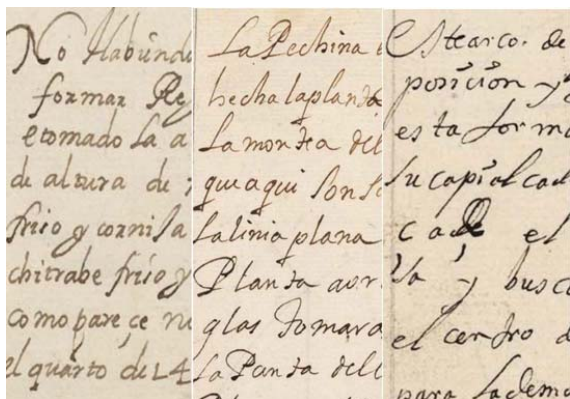 No Habiende
formar Reg
etomado la a
de altura de
friso y cornisa
chitrabe friso y
como pareçe no
el quarto de L4
La Pechina
hecha la planta
La montea del
que aqui son
La linia plana
Planta aor
glas tomara
La Panta dell
Este arco. de
posicion y
esta forma
su capialcad
el
ya y busc
el centro d
para la dema